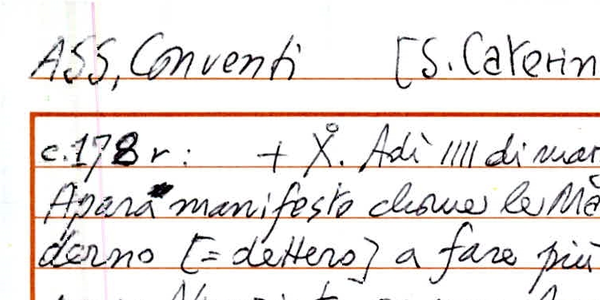 ASS, Conventi [S. Caterin
c. 178 r: + X°. Adì IIII di mar
Apara manifesto chome le Mā
derno [= dettero] a fare più